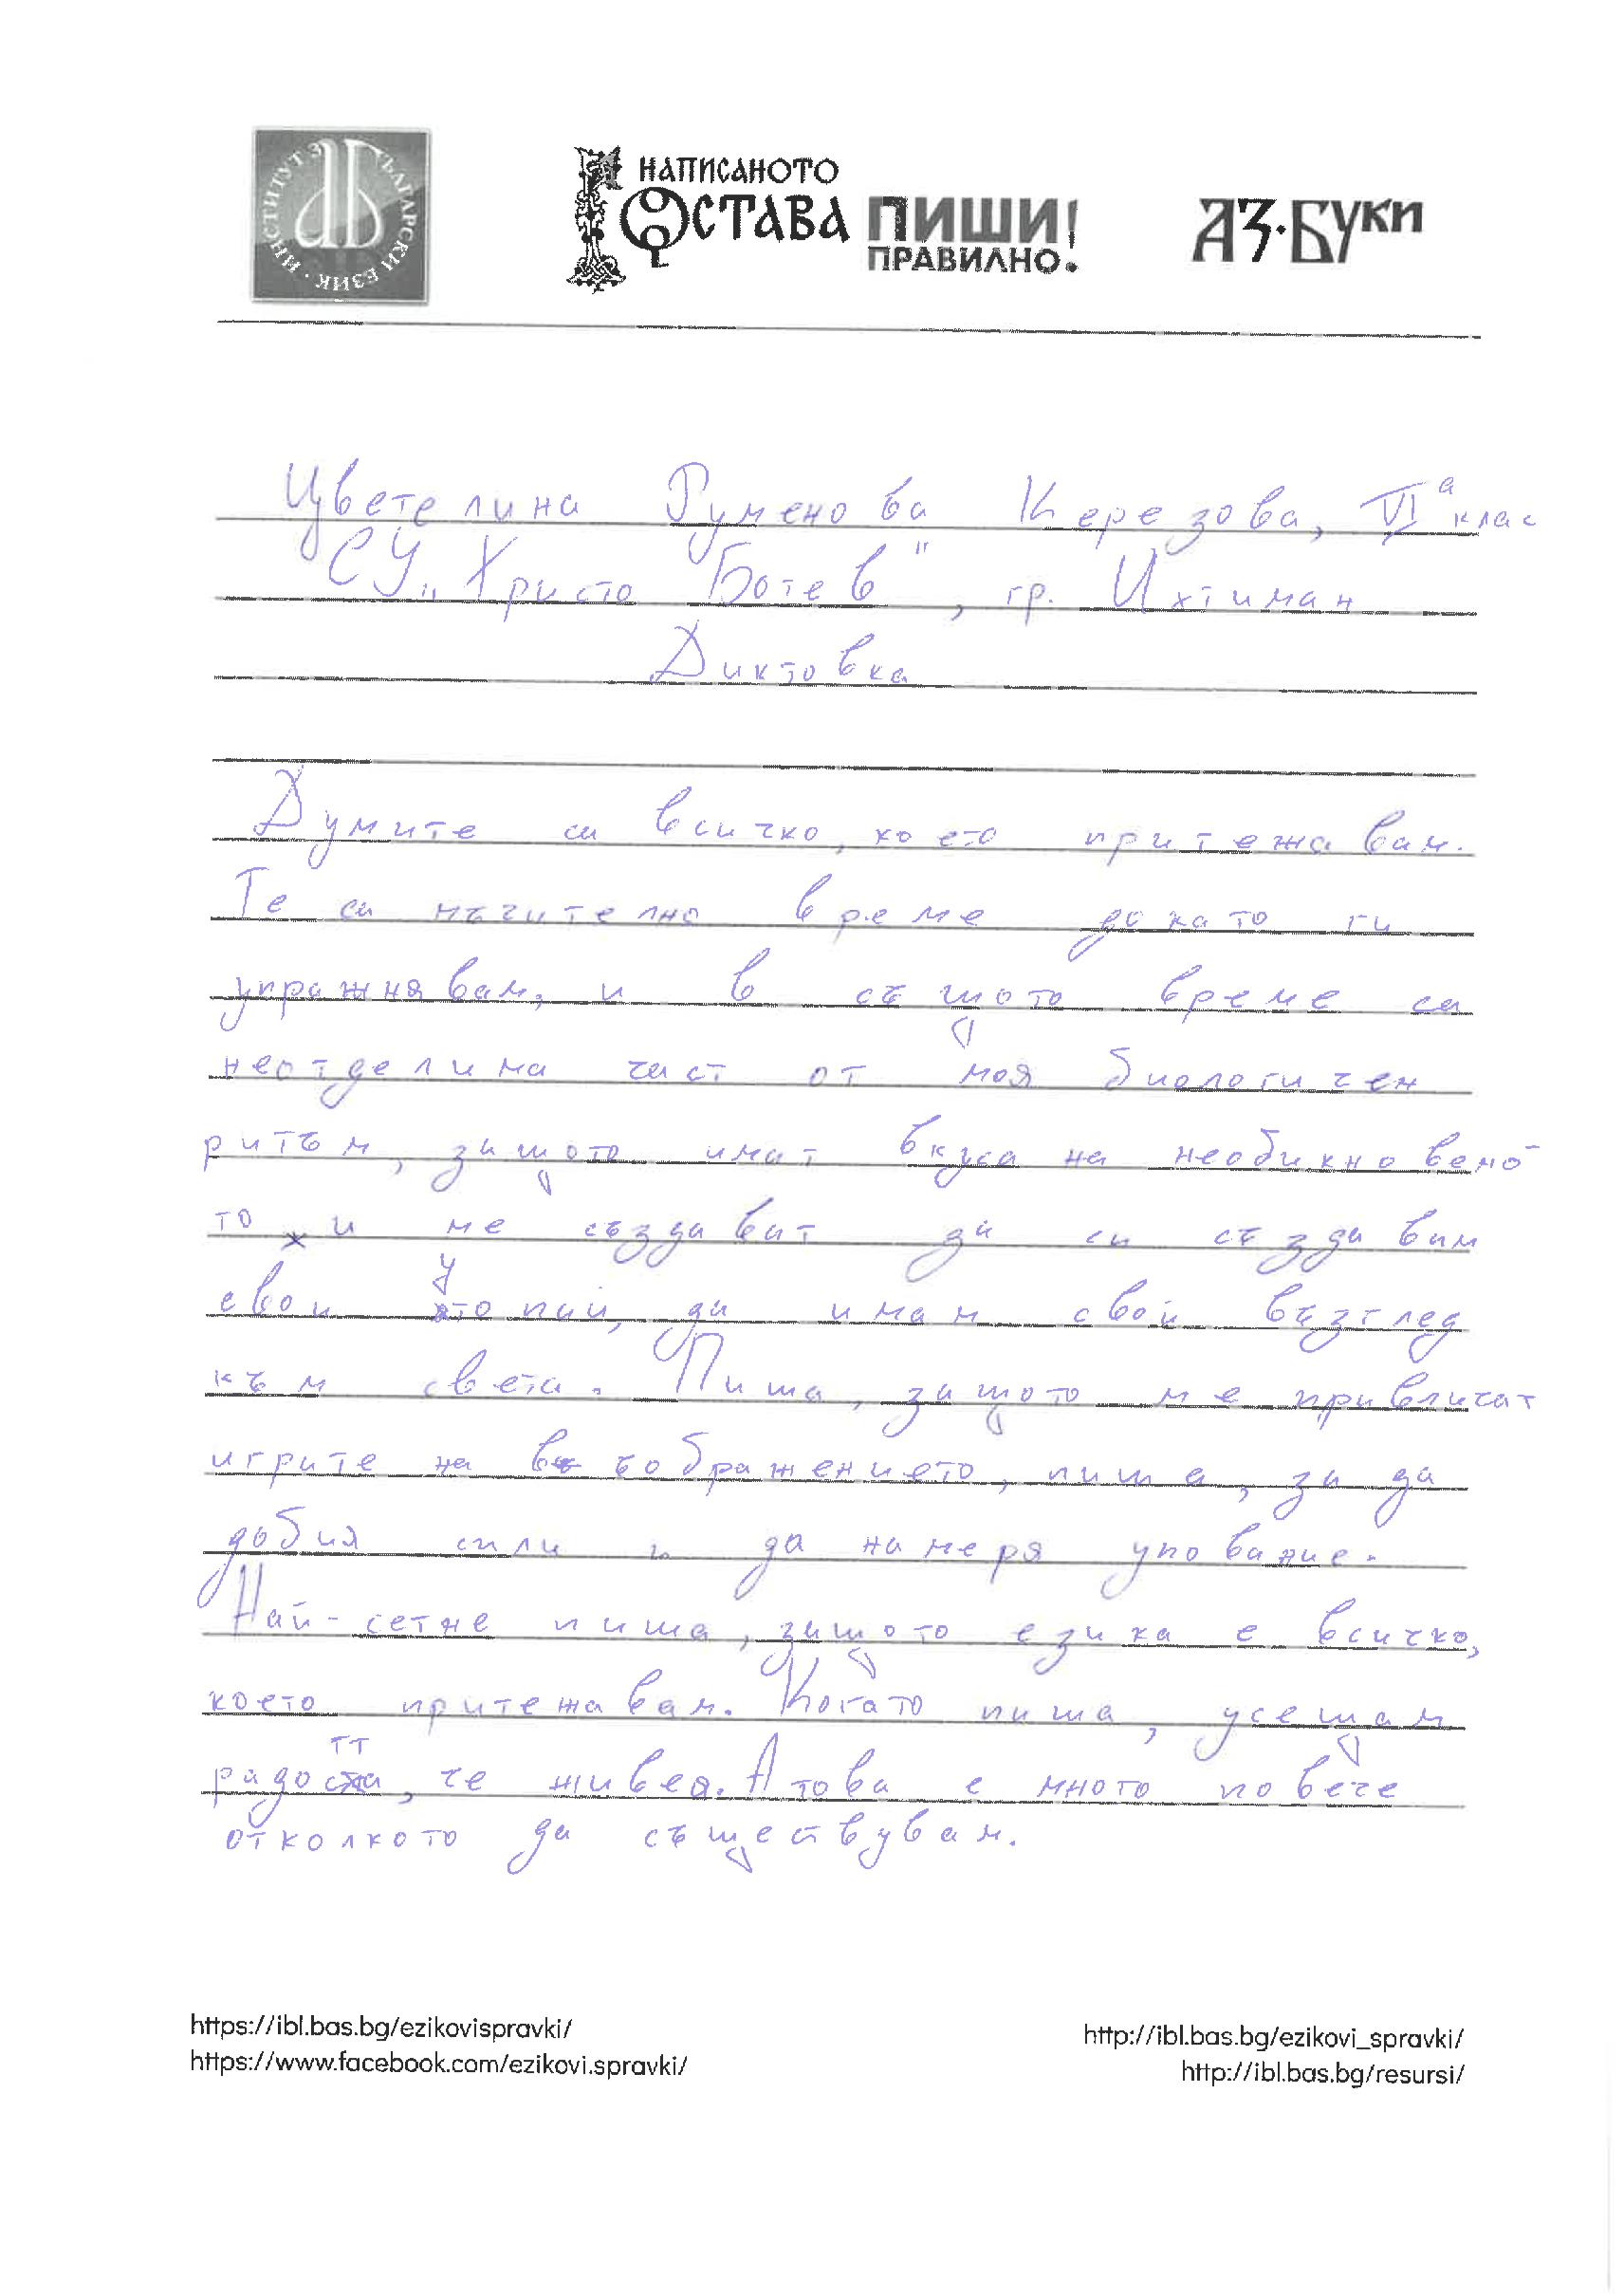 ИНСТИТУТ ЗА БЪЛГАРСКИ ЕЗИК
НАПИСАНОТО
ОСТАВА ПИШИ!
ПРАВИЛНО.
АЗ·БУКИ
Цветелина Руменова Керезова, VIа клас
СУ „Христо Ботев", гр. Ихтиман
Диктовка
Думите са всичко, което притежавам.
Те са мъчително време докато ги
упражнявам, и в същото време са
неотделима част от моя биологичен
ритъм, защото имат вкуса на необикновено-
то и ме създават да си създавам
свои утопии, да имам свой възглед
към света. Пиша, защото ме привличат
игрите на въображението, пиша, за да
добия сили и да намеря упование.
Най-сетне пиша, защото езика е всичко,
което притежавам. Когато пиша, усещам
радостта, че живея. А това е много повече
отколкото да съществувам.
https://ibl.bas.bg/ezikovispravki/
https://www.facebook.com/ezikovi.spravki/
http://ibl.bas.bg/ezikovi_spravki/
http://ibl.bas.bg/resursi/